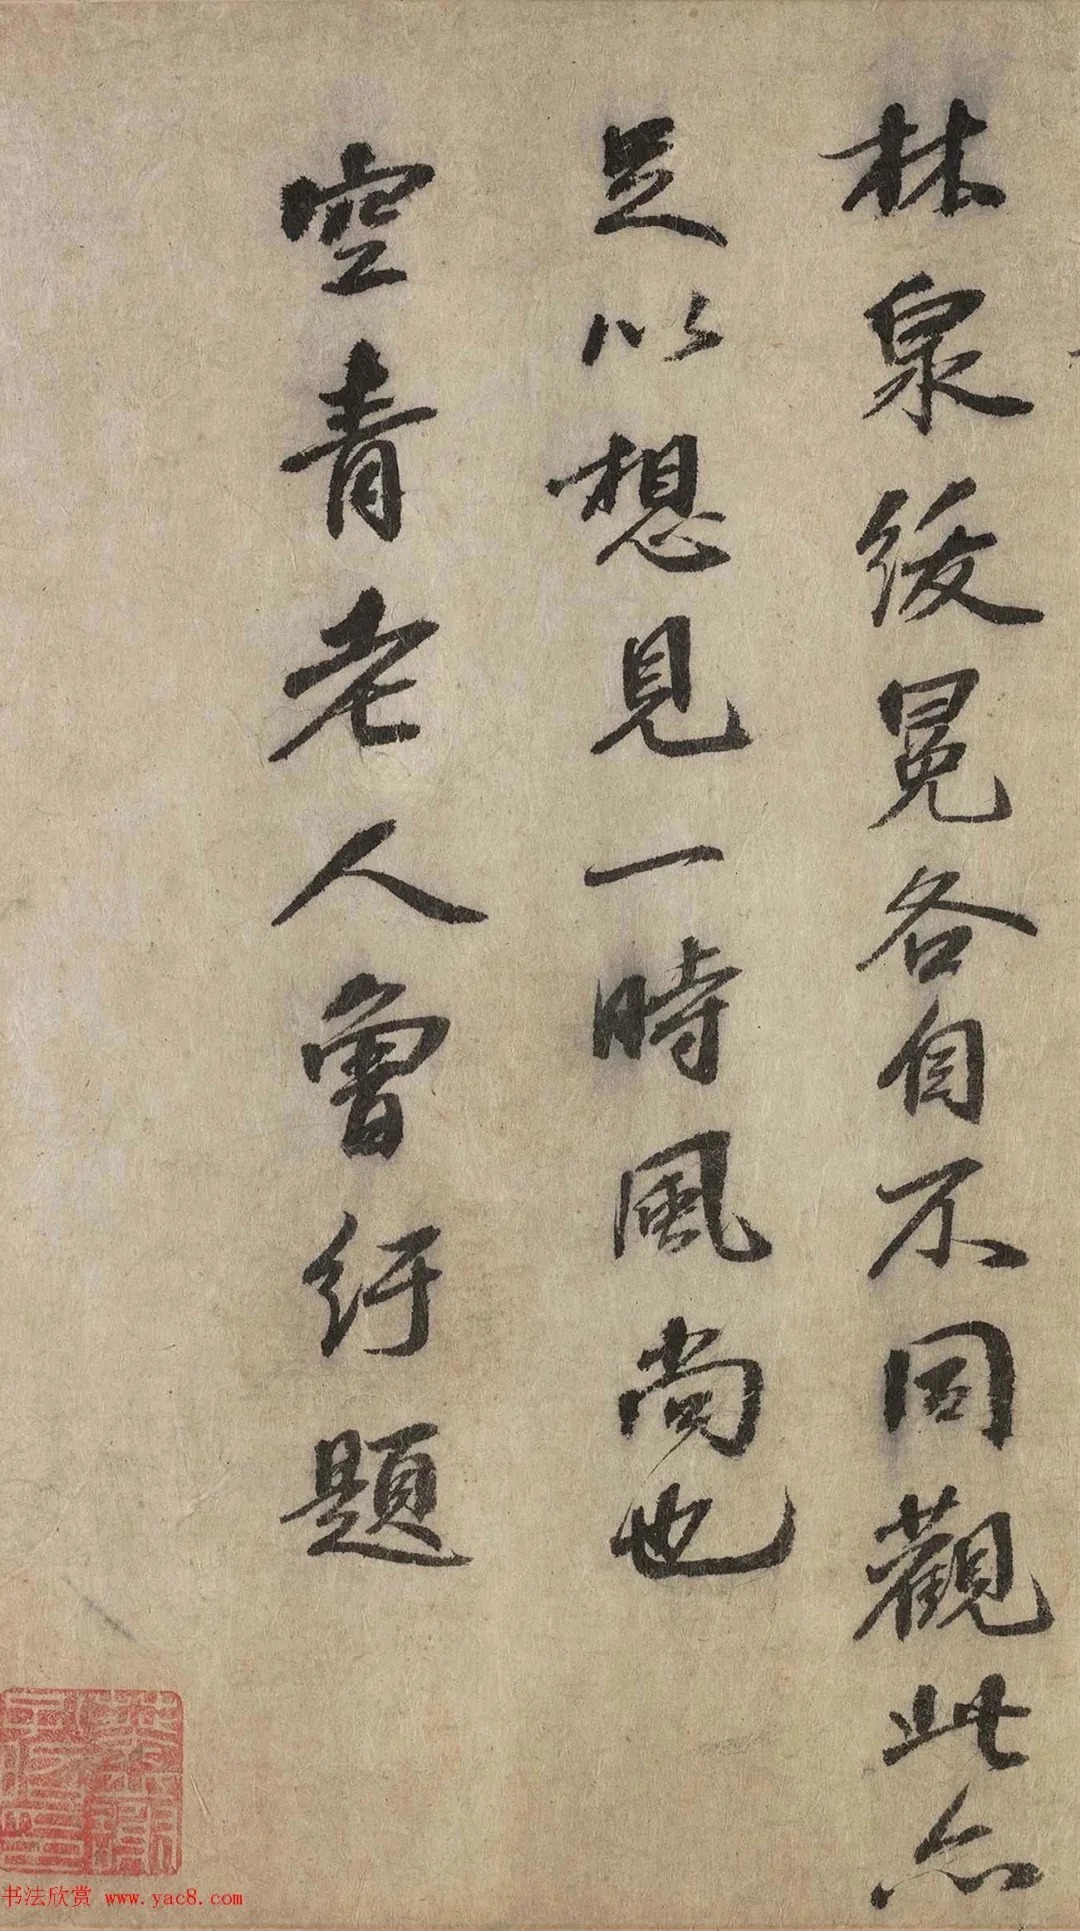 林泉紱冕各自不同觀此亦
足以想見一時風尚也
空青老人曾紆題
书法欣赏 www.yac8.com